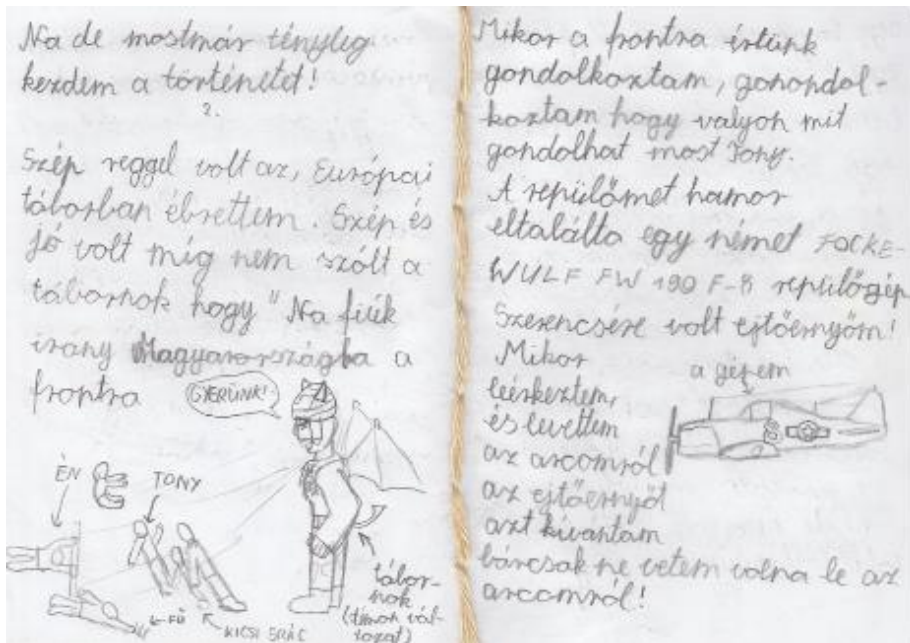 Na de mostmár tényleg
kezdem a történetet!
2.
Szép reggel volt az, Európai
táborban ébrettem. Szép és
jó volt míg nem szólt a
tábornok hogy "Na fiúk
irany Magyarországba a
frontra
GYERÜNK!
ÉN
TONY
FŰ
KICSI SRÁC
tábor-
nok
(timon vál-
tozat)
Mikor a frontra értünk
gondolkoztam, gonondol-
koztam hogy valyon mit
gondolhat most Tony.
A repülőmet hamor
eltalálta egy német FOCKE-
WULF FW 190 F-8 repülőgép
Szerencsére volt ejtőernyőm!
Mikor
leérkeztem,
és levettem
az arcomról
az ejtőernyőt
azt kivantam
bárcsak ne vetem volna le az
arcomról!
a gépem